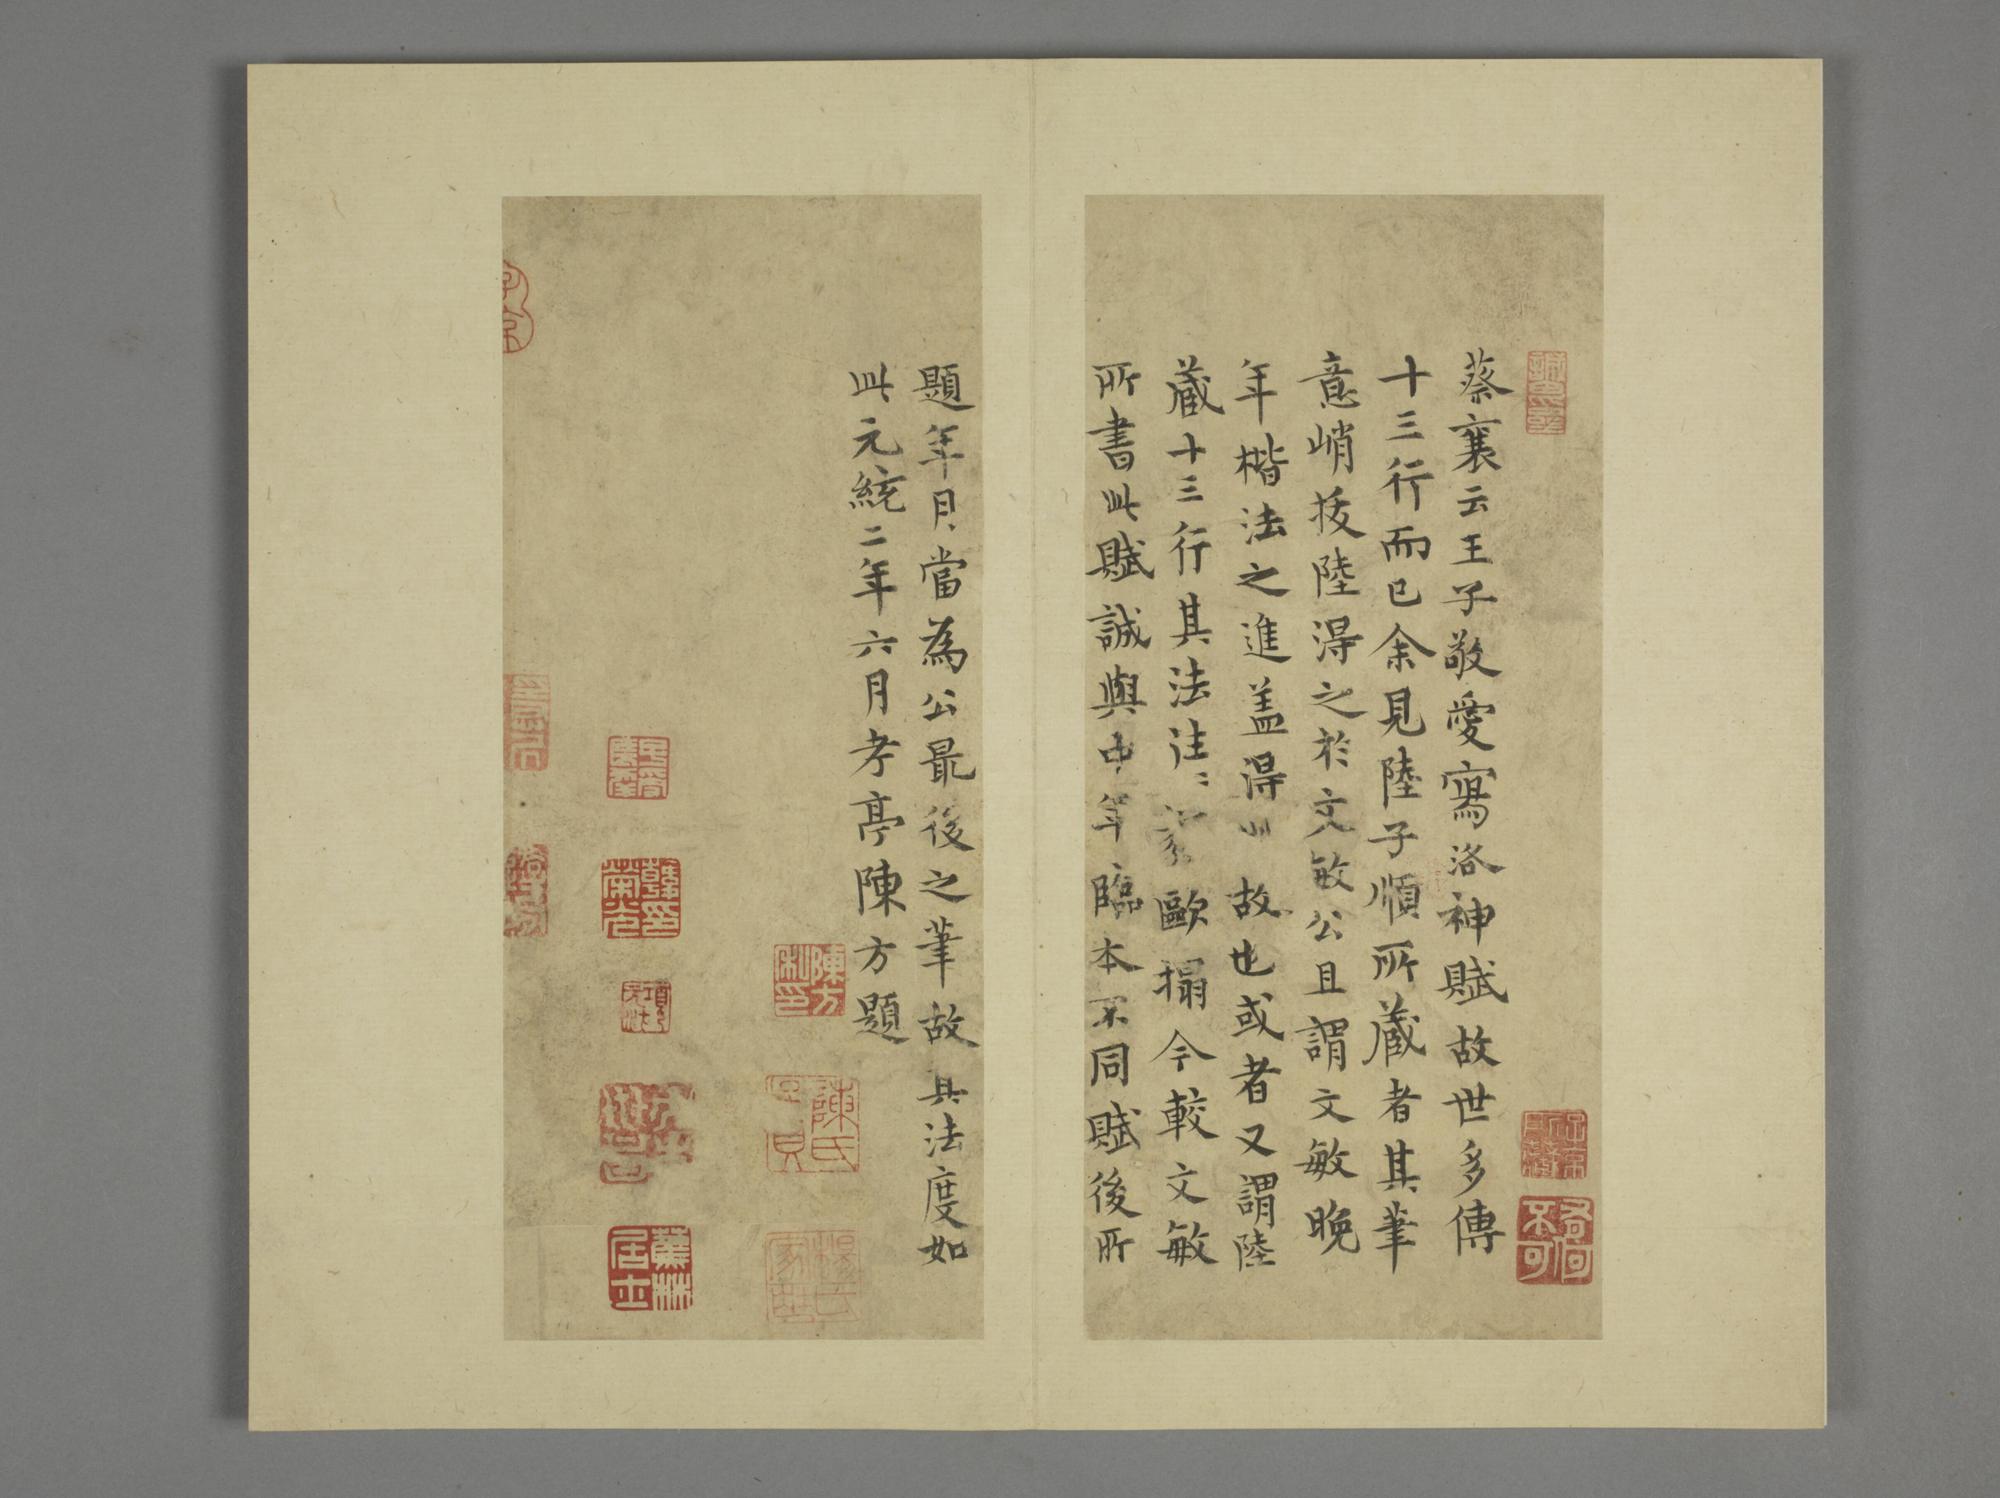 蔡襄云王子敬愛寫洛神賦故世多傳
十三行而已余見陸子順所藏者其筆
意峭拔陸得之於文敏公且謂文敏晚
年楷法之進盖得此故也或者又謂陸
藏十三行其法往〻 歐搨今較文敏
所書此賦誠與中年臨本不同賦後所
題年月當為公最後之筆故具法度如
此元統二年六月孝亭陳方題
陳方私印
陳氏
楊氏家世
韓榮光印
蕉林居士
無何不可
子京